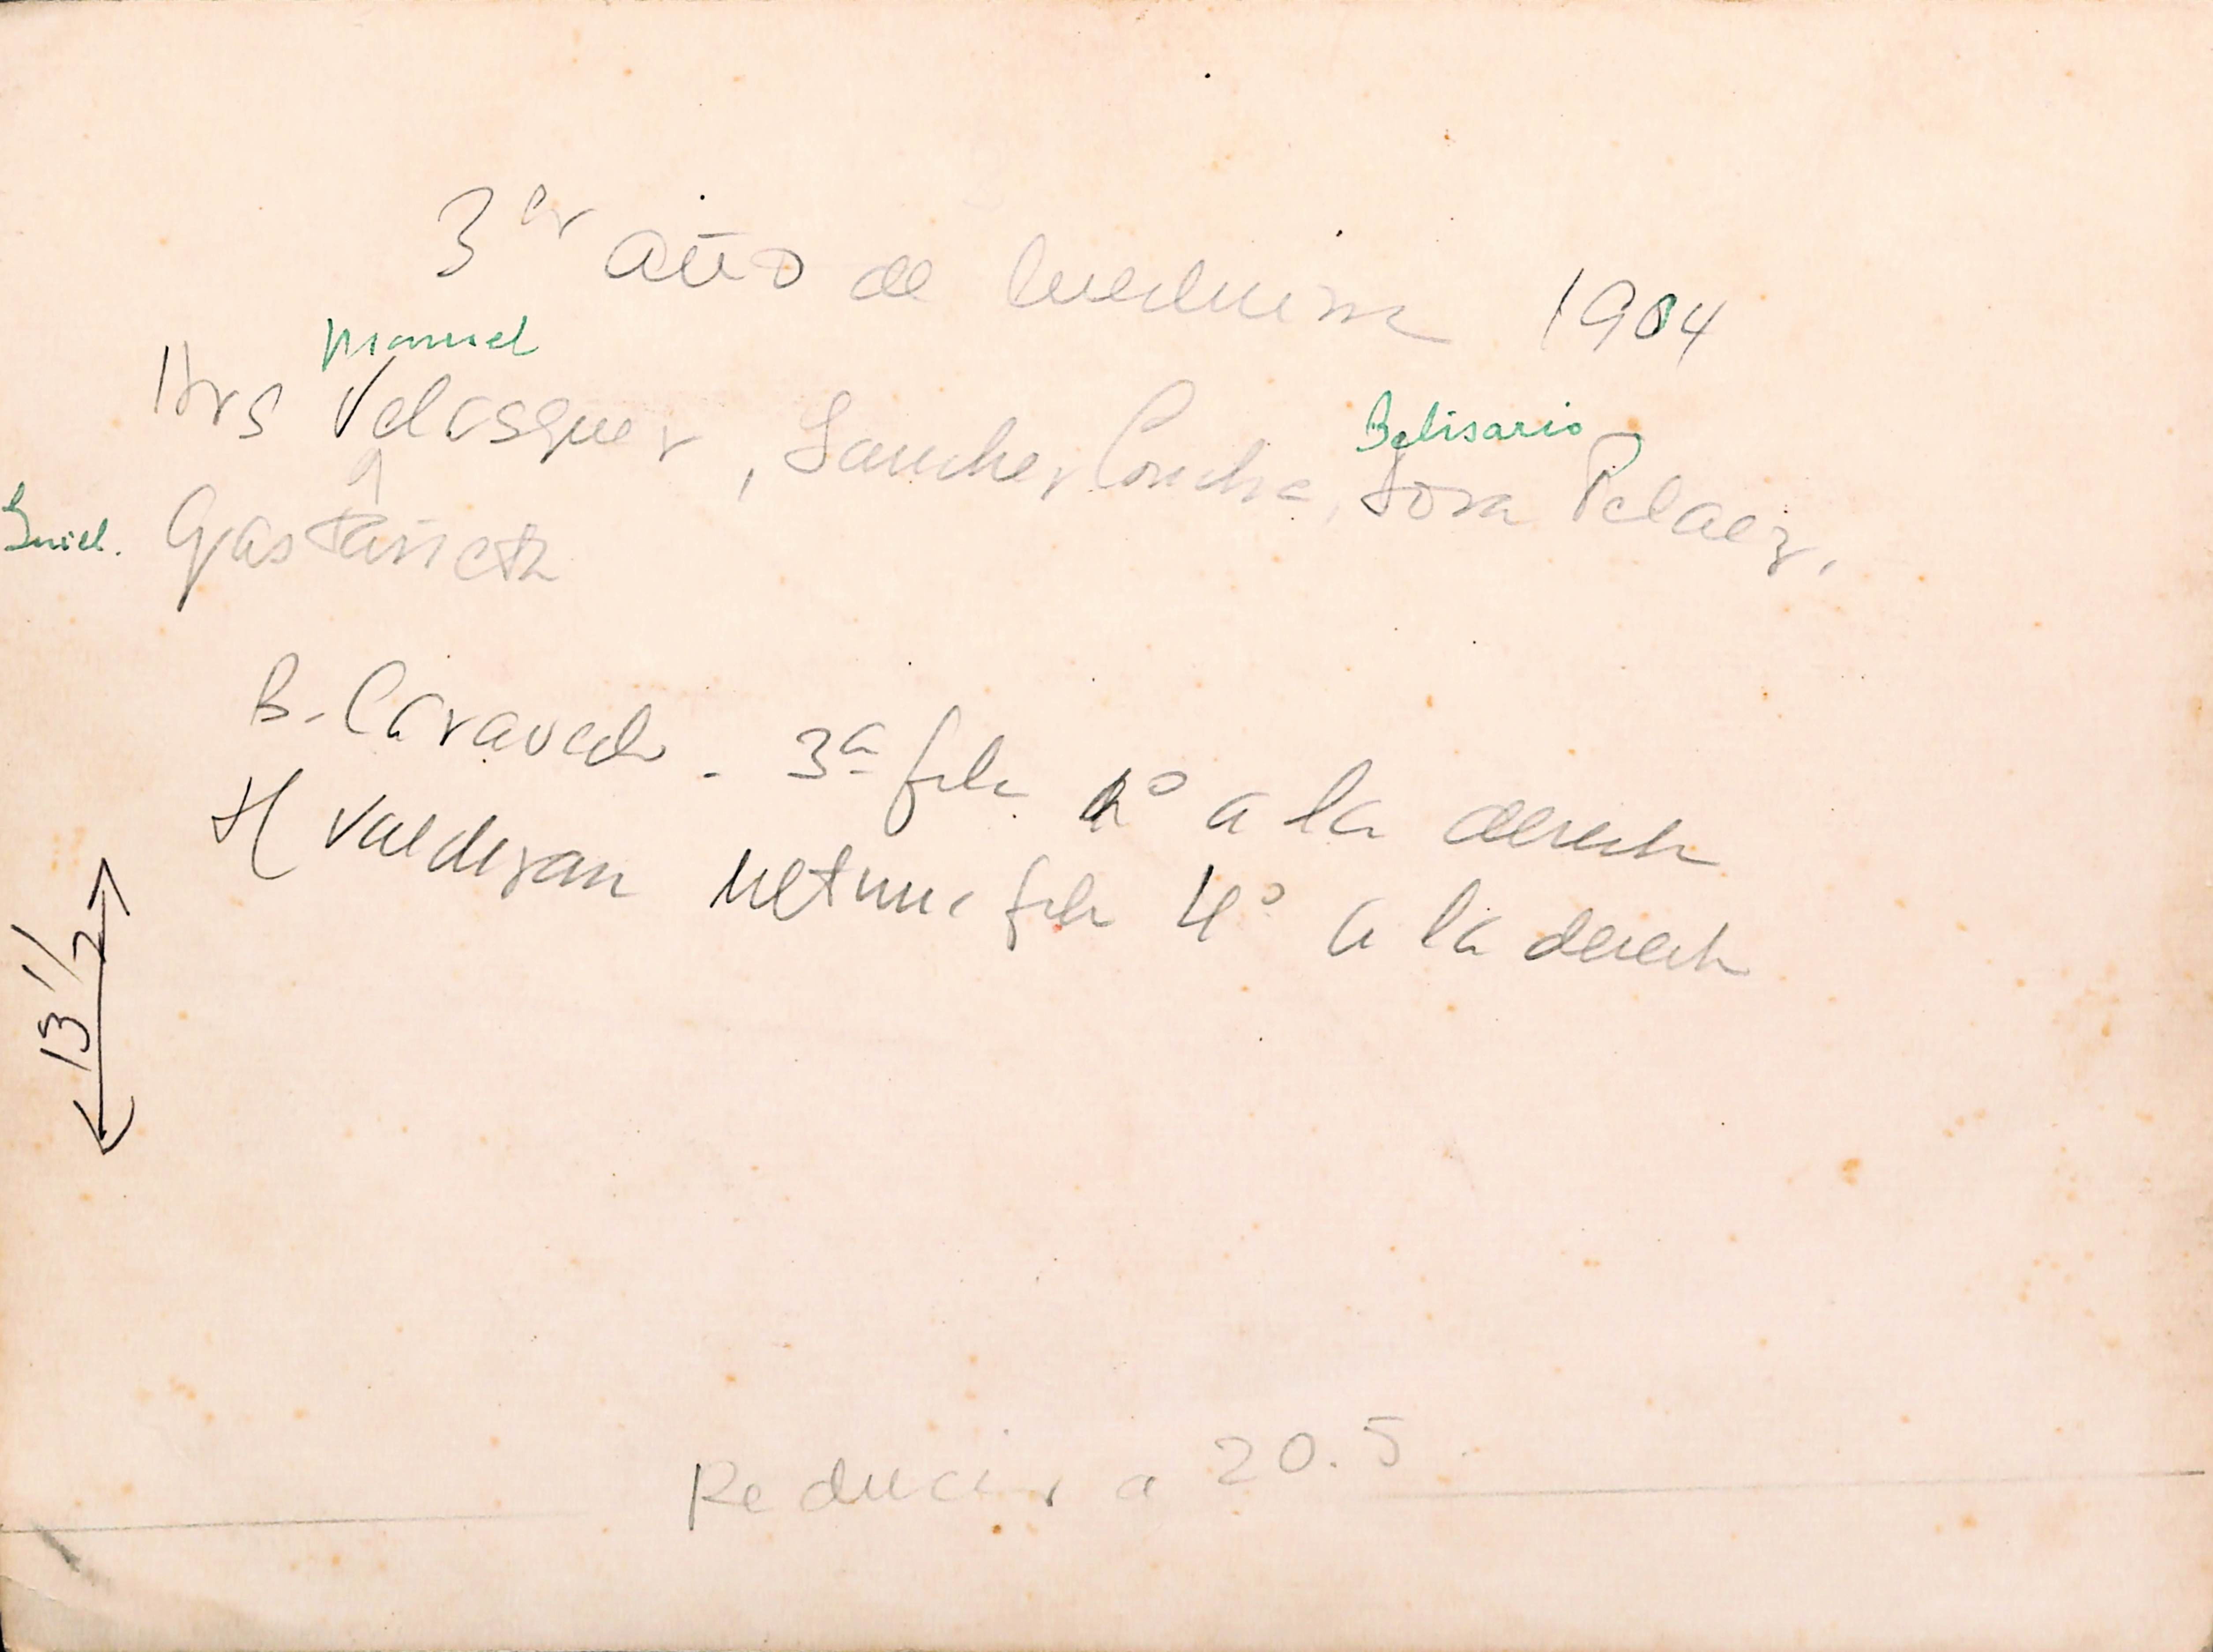 3er año de medicina 1904
Manuel
Drs Velasquez, Sanchez Concha, Belisario Sosa Pelaez,
Guill. Gastañeta
B. Caravedo - 3a fila 1° a la derecha
H Valdizan ultima fila 4° a la derecha
13 1/2
Reducir a 20.5